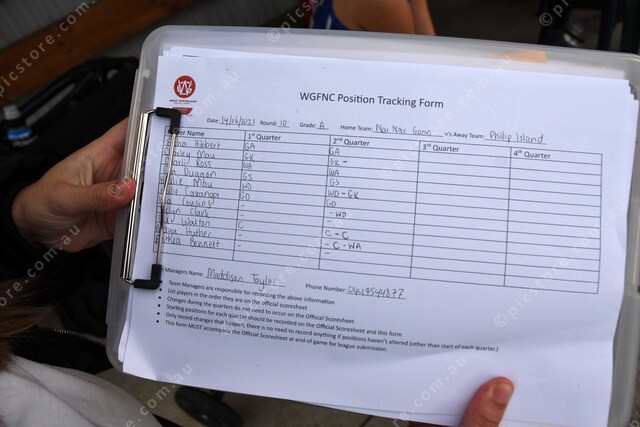 WGFNC Position Tracking Form
Date: 14/06/2025 Round: 10 Grade: A Home Team: Nar Nar Goon v's Away Team: Phillip Island
Name 1st Quarter 2nd Quarter 3rd Quarter 4th Quarter
Hibbert GA GA
May GK GK -
Ross WA WA
Duggan GS GS
May WD WD - GK
Cavanga GD GD
Cousins - - WD
Clark - -
Walton C C - C
Huther - - C - WA
Bennett - -
Managers Name: Maddison Taylor Phone Number: 0417544877
• Team Managers are responsible for recording the above information
• List players in the order they are on the official scoresheet
• Changes during the quarters do need to occur on the Official Scoresheet
• Starting positions for each quarter should be recorded on the Official Scoresheet and this form
• Only record changes that happen, there is no need to record anything if positions haven't altered (other than start of each quarter.)
• This form MUST accompany the Official Scoresheet at end of game for league submission.
picstore.com.au